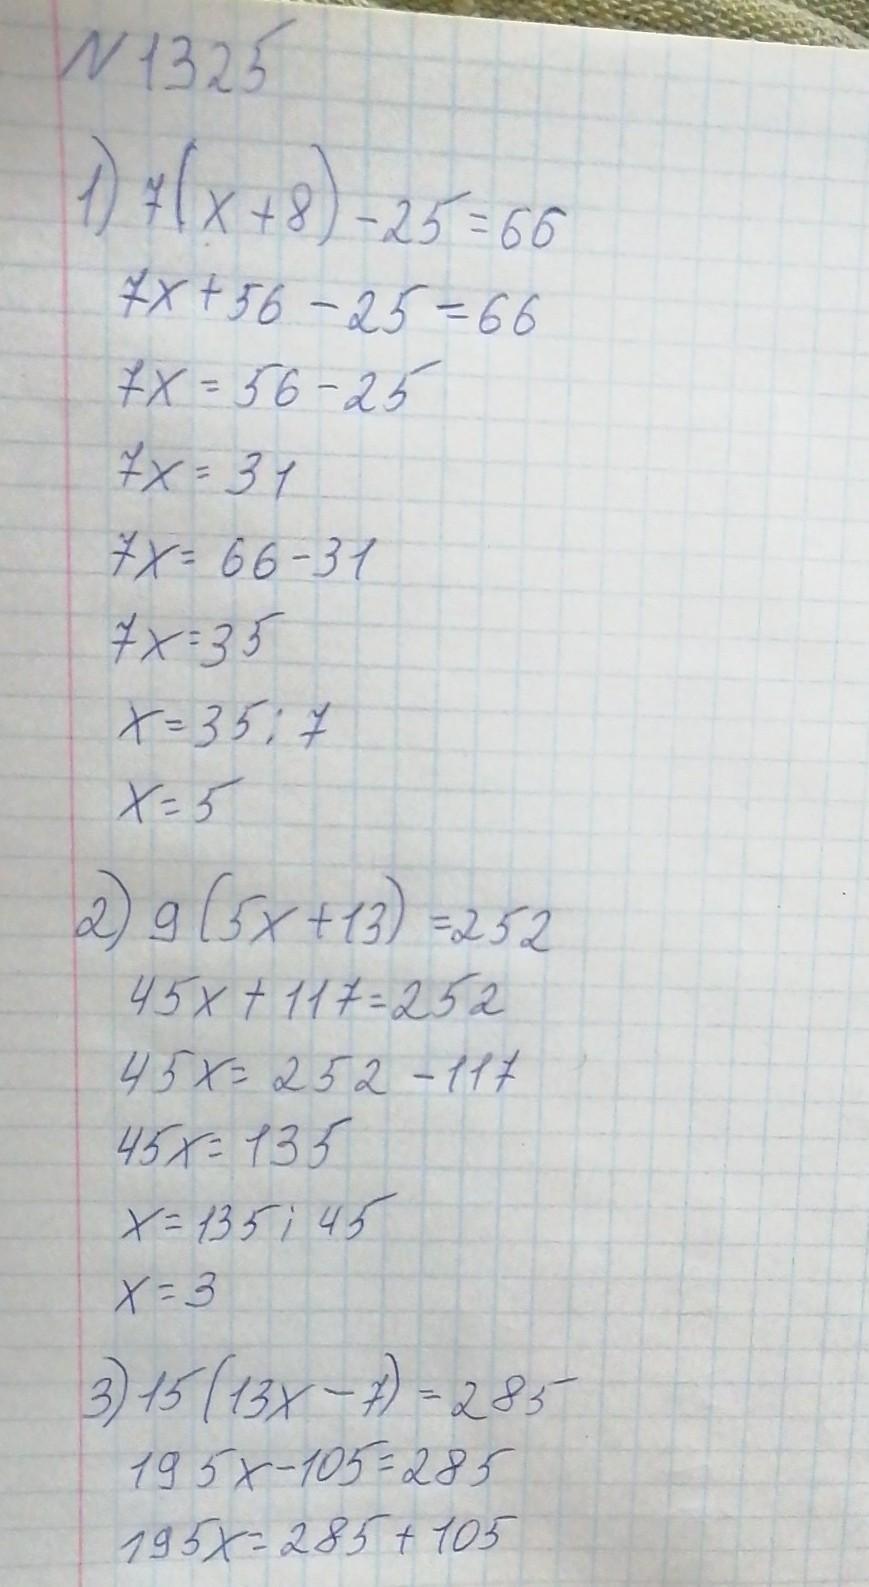 N 1325
1) 7(x+8)-25=66
7x+56-25=66
7x=56-25
7x=31
7x=66-31
7x=35
x=35:7
x=5
2) 9(5x+13)=252
45x+117=252
45x=252-117
45x=135
x=135:45
x=3
3) 15(13x-7)=285
195x-105=285
195x=285+105